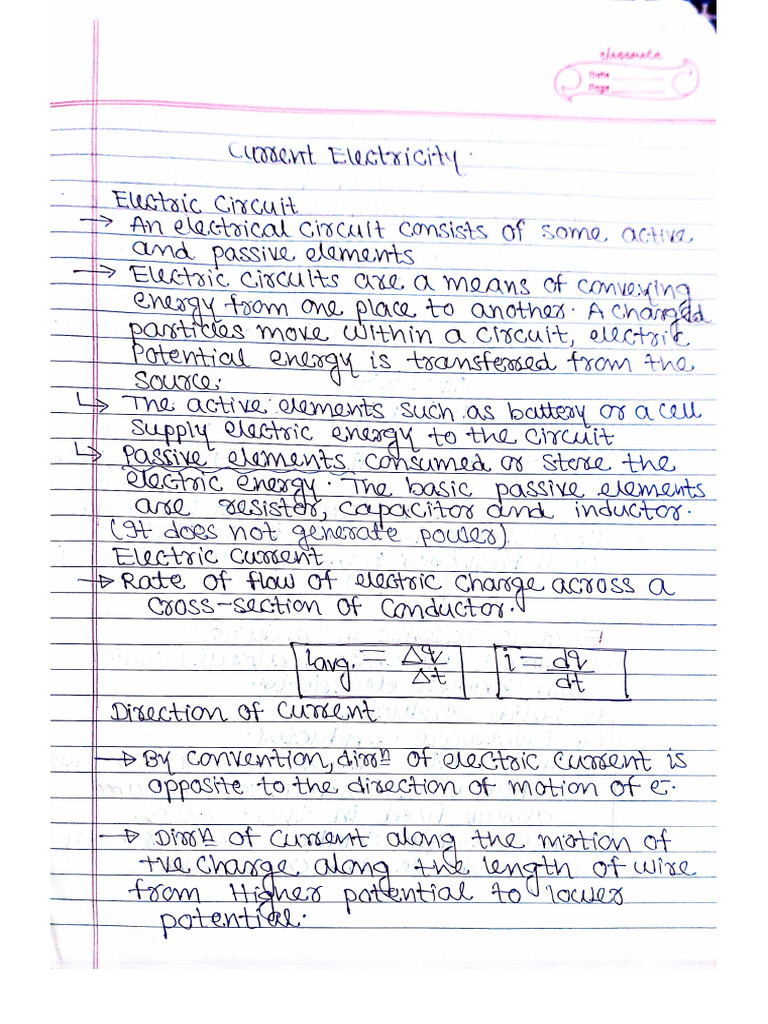 classmate
Date
Page
Current Electricity.
Electric Circuit
→ An electrical circuit consists of some active
and passive elements
→ Electric circuits are a means of conveying
energy from one place to another. A charged
particles move within a circuit, electric
Potential energy is transferred from the
source.
↳ The active elements such as battery or a cell
supply electric energy to the circuit
↳ Passive elements consumed or store the
electric energy. The basic passive elements
are resistor, capacitor and inductor.
(It does not generate power)
Electric Current
→ Rate of flow of electric charge across a
cross-section of conductor.
iavg. = Δq/Δt i = dq/dt
Direction of current
→ By convention, dirrⁿ of electric current is
opposite to the direction of motion of e⁻.
→ Dirrⁿ of current along the motion of
+ve charge along the length of wire
from Higher potential to lower
potential.